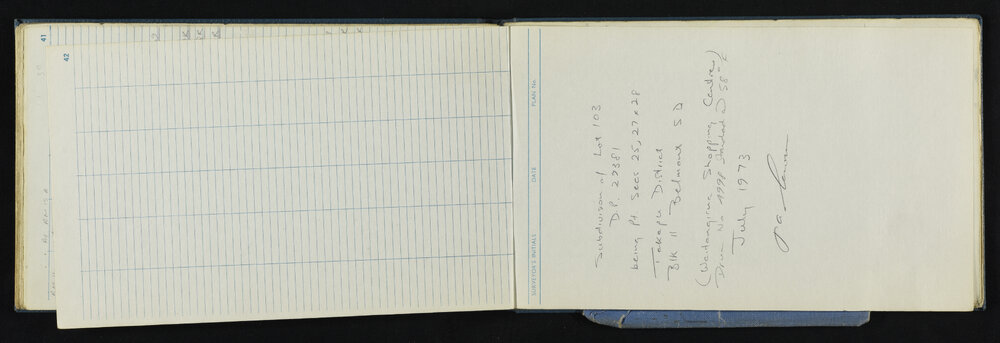 41
42
SURVEYOR'S INITIALS
DATE
PLAN No.
Subdivision of Lot 103
D.P. 29381
being Pt. Secs 25, 27 & 28
Takapu District
Blk II Belmont SD
(Waitangirua Shopping Centre)
No 4998
July 1973